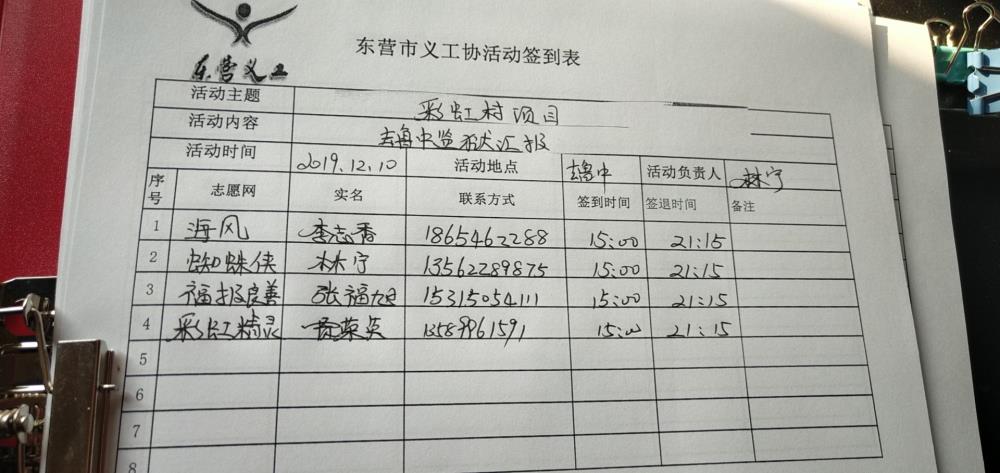 东营义工
东营市义工协活动签到表
活动主题 彩虹村项目
活动内容 鲁中监狱汇报
活动时间 2019.12.10 活动地点 鲁中 活动负责人 林宁
序号 志愿网 实名 联系方式 签到时间 签退时间 备注
1 海风 李志香 1865462288 15:00 21:15
2 蜘蛛侠 林宁 13562289875 15:00 21:15
3 福报良善 张福旭 15315054111 15:00 21:15
4 彩虹精灵 荣英 13589961591 15:00 21:15
5
6
7
8